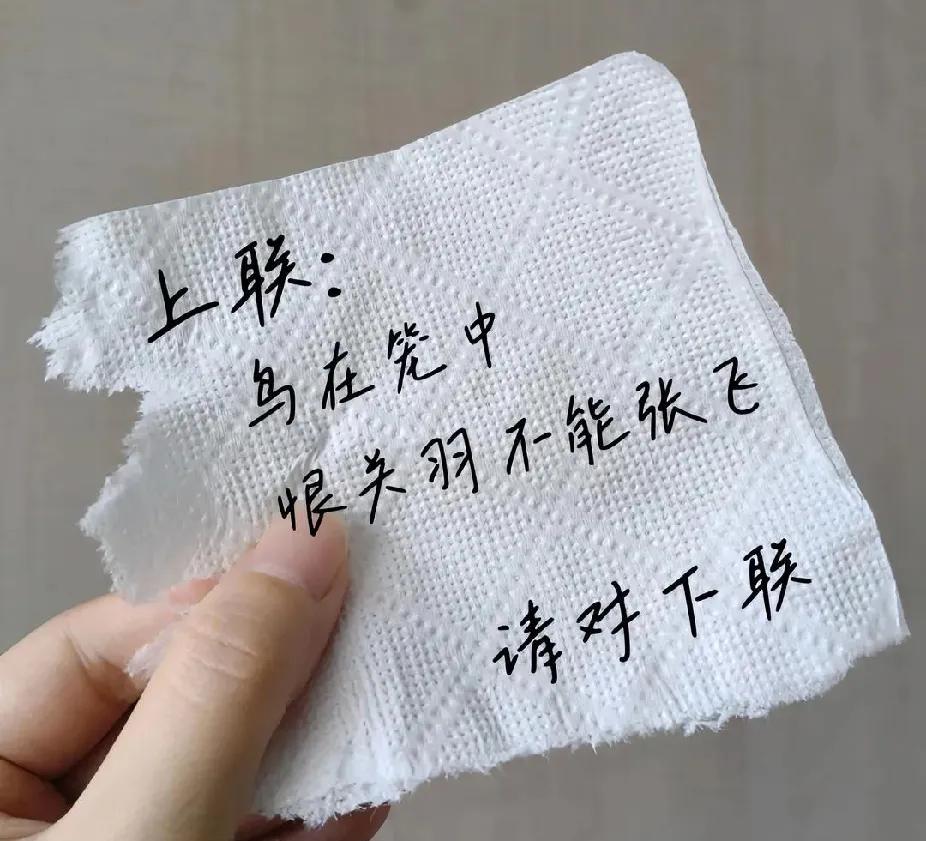 上联：
鸟在笼中
恨关羽不能张飞
请对下联